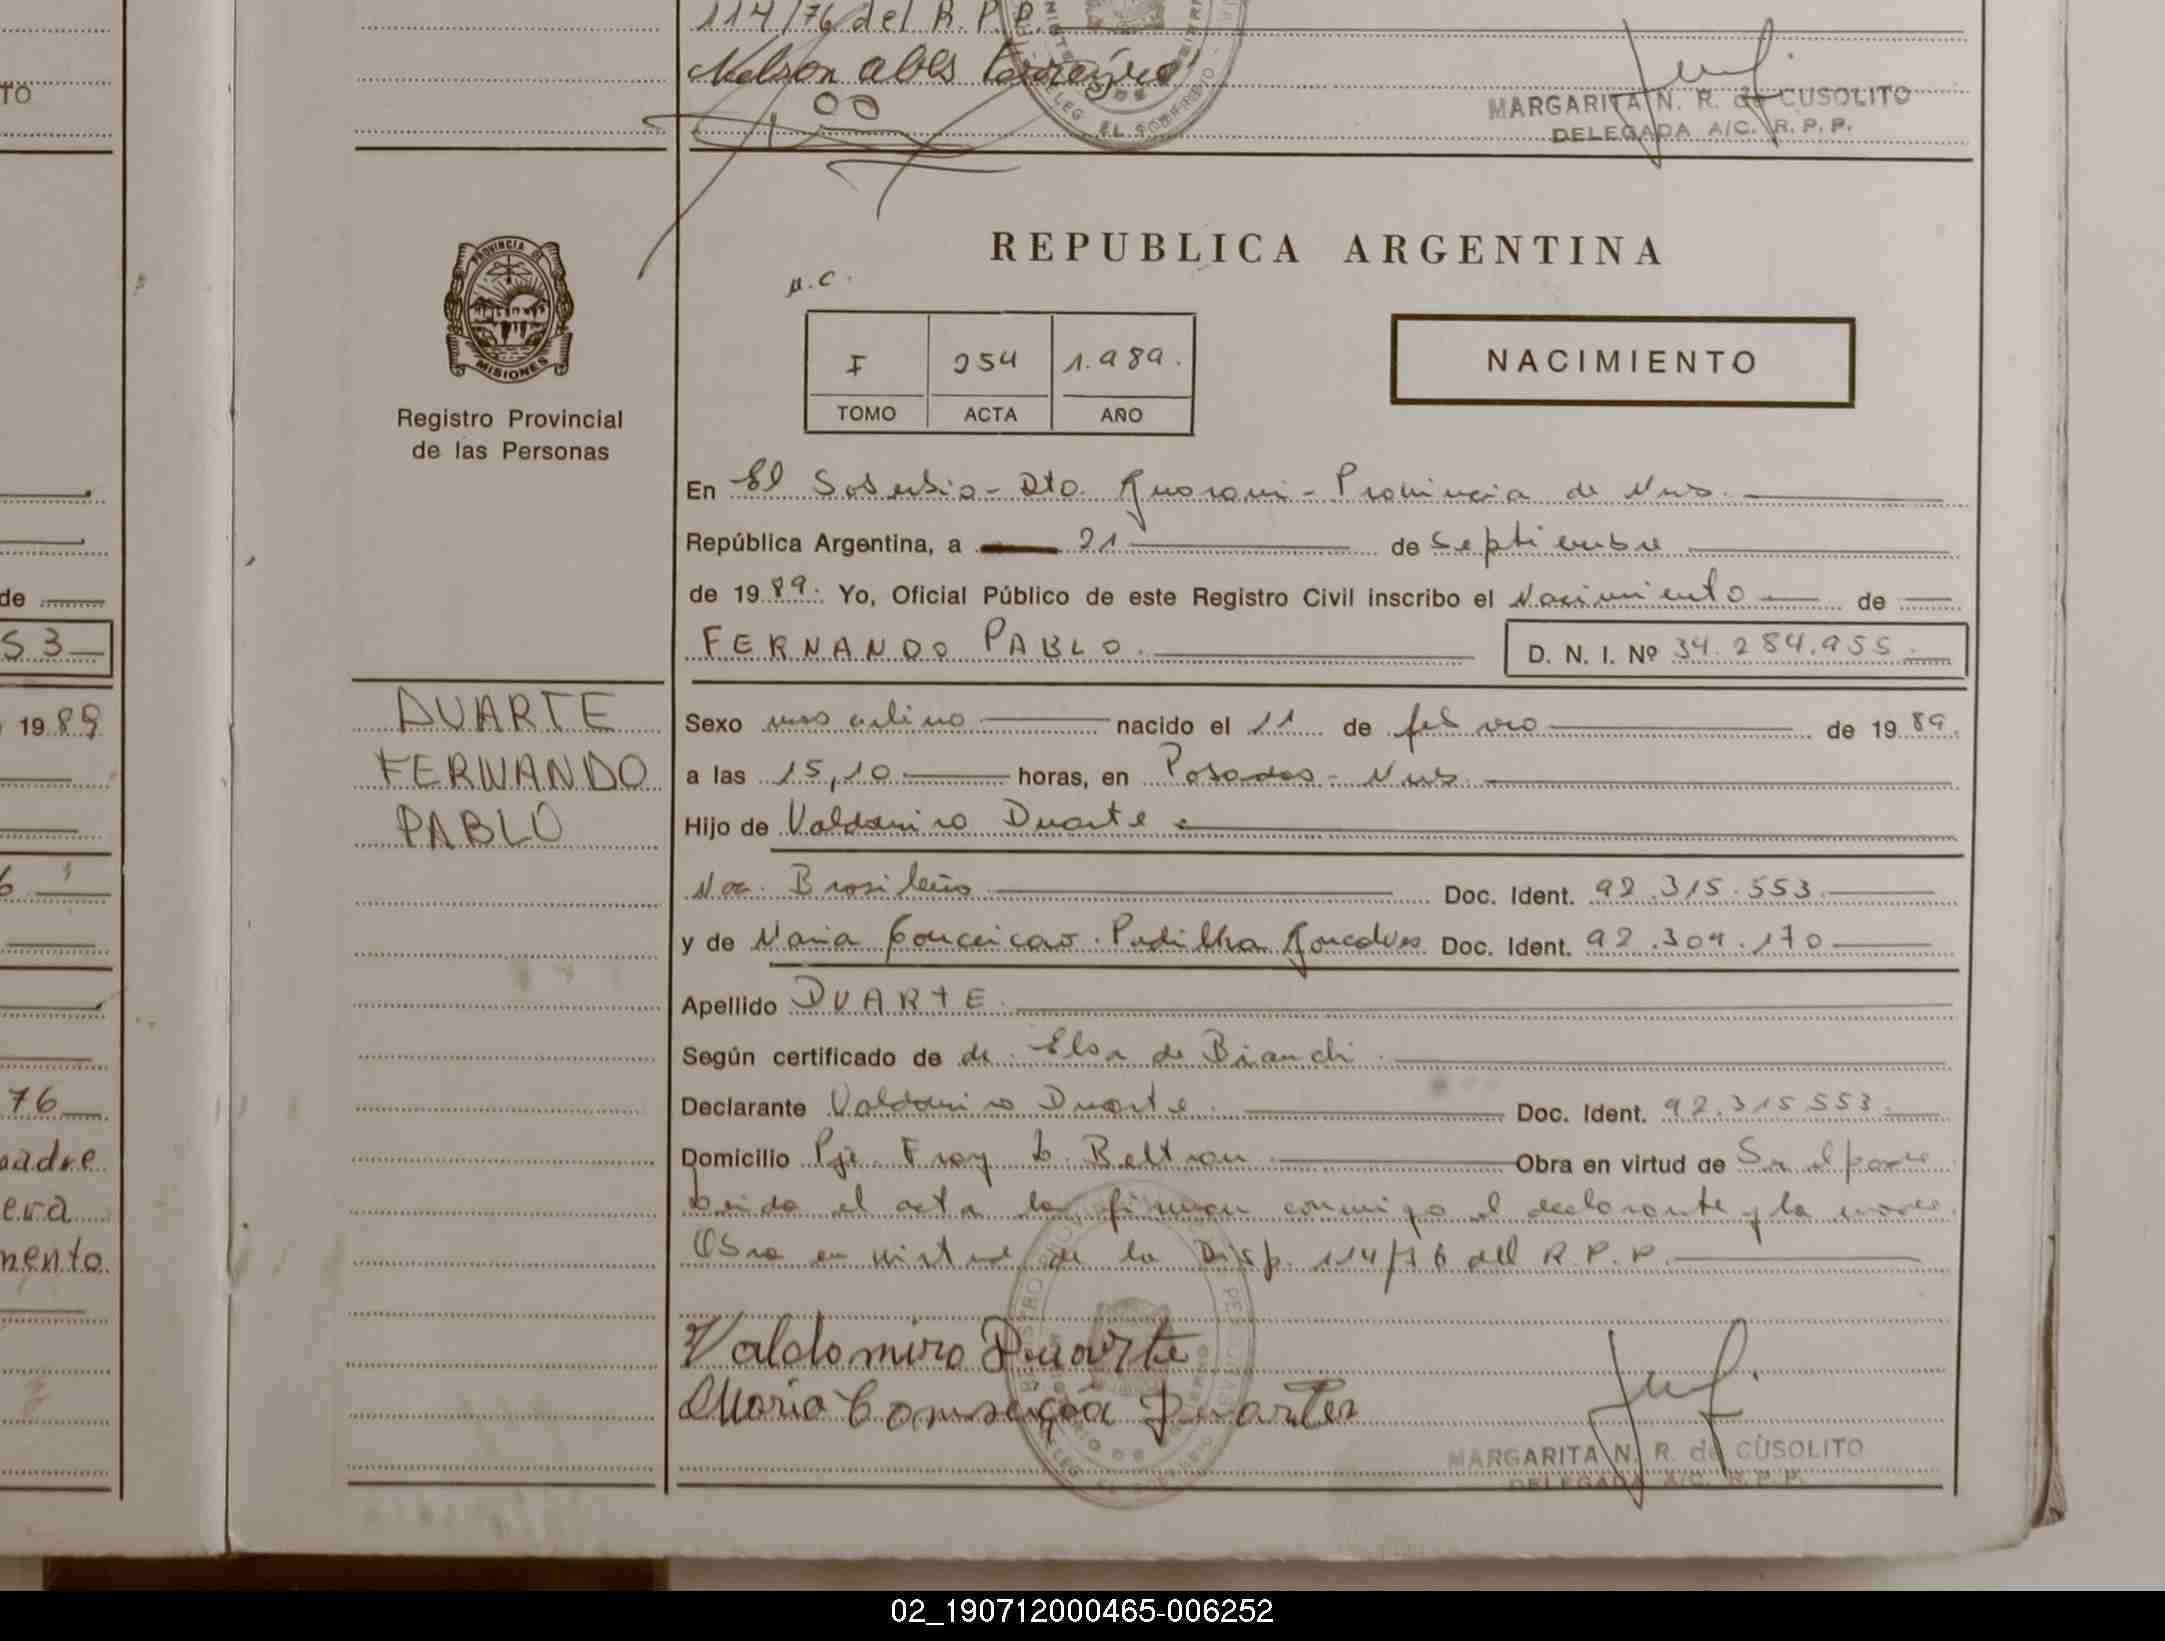 114/76 del R.P.P.
Nelson
MARGARITA N. R. de CUSOLITO
DELEGADA A/C. R. P. P.
TO
PROVINCIA DE
MISIONES
Registro Provincial
de las Personas
REPUBLICA ARGENTINA
I 254 1.989.
TOMO ACTA AÑO
NACIMIENTO
En El Soberbio - Dto. Guarani - Provincia de Mnes.
República Argentina, a 21 de Septiembre
de 1989. Yo, Oficial Público de este Registro Civil inscribo el Nacimiento de
FERNANDO PABLO. D. N. I. Nº 34.284.955
de
53
DUARTE
FERNANDO
PABLO
Sexo masculino nacido el 11 de febrero de 1989.
a las 15,10 horas, en Posadas - Mnes.
Hijo de Valdomiro Duarte
Nac. Brasileña Doc. Ident. 92.315.553
y de Maria Conceicao Padilha Goncalves Doc. Ident. 92.304.170
Apellido DUARTE.
Según certificado de dr. Elsa de Bianchi
Declarante Valdomiro Duarte Doc. Ident. 92.315553
Domicilio Pje. Fray L. Beltran Obra en virtud de Ser el padre
Leida el acta la firman conmigo el declarante y la madre.
Obra en virtud de la Disp. 114/76 del R.P.P.
Valdomiro Duarte
Maria Conseiçoa Duartes
MARGARITA N. R. de CUSOLITO
DELEGADA A/C. R. P. P.
1989
76
adre
era
mento
02_190712000465-006252